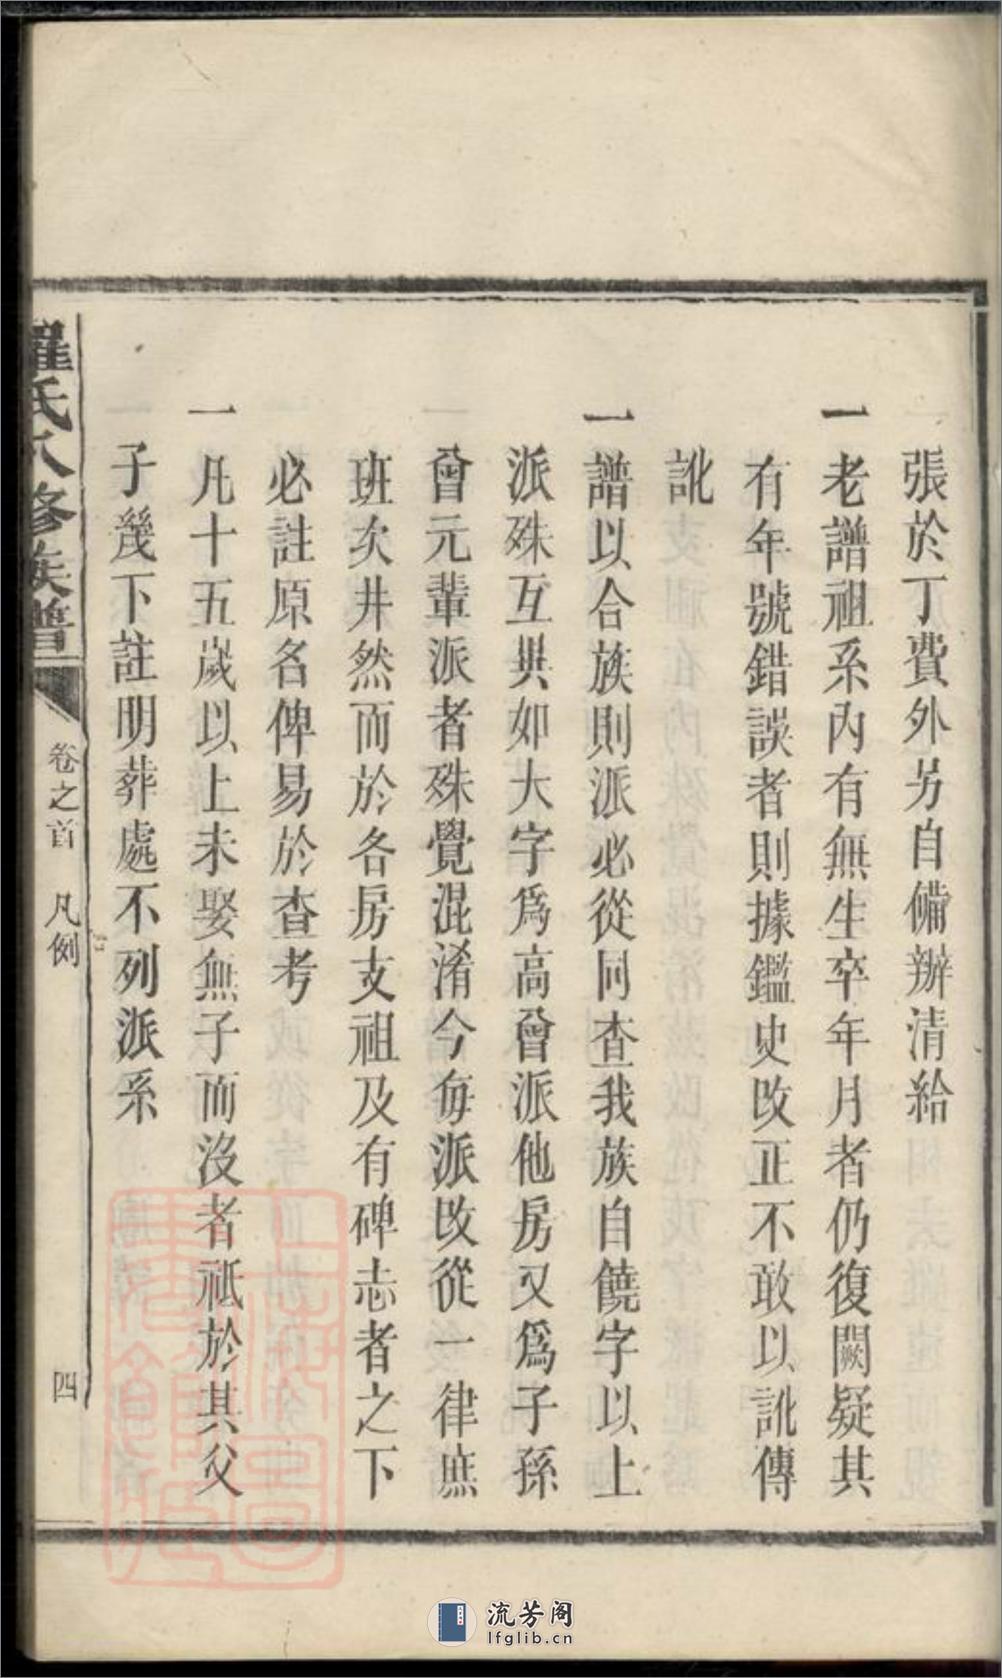 張於丁費外另自備辦清給
一老譜祖系內有無生卒年月者仍復闕疑其
有年號錯誤者則據鑑史改正不敢以訛傳
訛
一譜以合族則派必從同查我族自饒字以上
派殊互異如大字爲高曾派他房又爲子孫
曾元輩派者殊覺混淆今每派改從一律庶
班次井然而於各房支祖及有碑志者之下
必註原名俾易於查考
一凡十五歲以上未娶無子而沒者祇於其父
子幾下註明葬處不列派系
羅氏八修族譜
卷之首 凡例
四
流芳阁
lfglib.cn